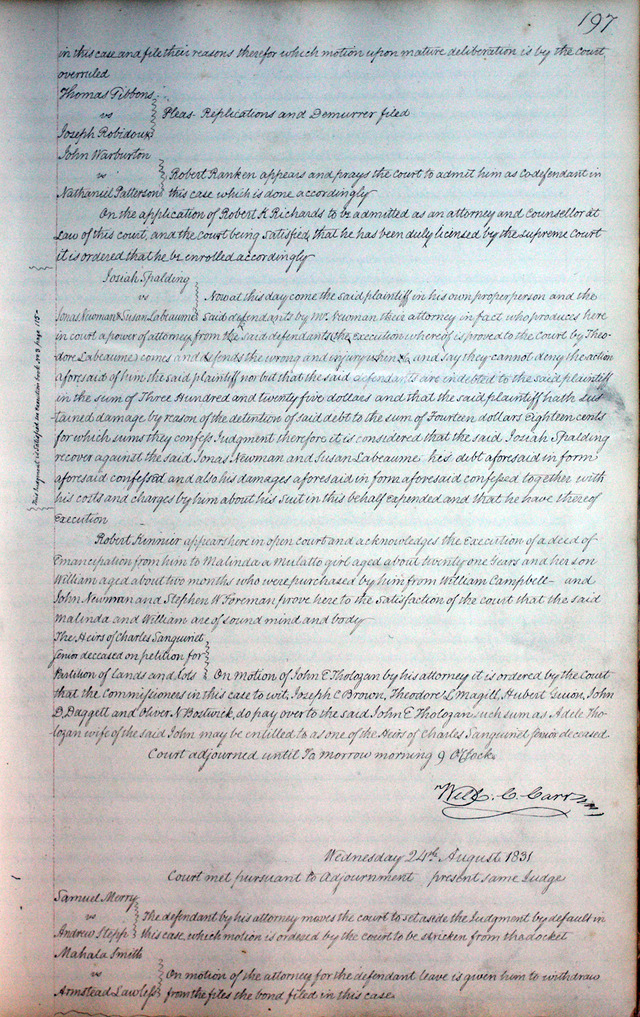 197
in this case and file their reasons therefor which motion upon mature deliberation is by the court
overruled
Thomas Fibbons
vs
Pleas Replications and Demurrer filed
Joseph Robidoux
John Warburton
vs
Robert Ranken appears and prays the court to admit him as codefendant in
Nathaniel Patterson this case which is done accordingly
On the application of Robert K Richards to be admitted as an attorney and counsellor at
Law of this court, and the court being satisfied, that he has been duly licensed by the Supreme Court
it is ordered that he be enrolled accordingly
Josiah Spalding
vs
Now at this day come the said plaintiff in his own proper person and the
Jonas Newman & Susan Labeaume said defendants by Mr. Newman their attorney in fact who produces here
in court a power of attorney, from the said defendants (the execution whereof is proved to the Court by Theo-
dore Labeaume) comes and defends the wrong and injury when &c, and say they cannot deny the action
aforesaid of him the said plaintiff nor but that the said defendants are indebted to the said plaintiff
in the sum of Three Hundred and twenty five dollars and that the said plaintiff hath sus
tained damage by reason of the detention of said debt to the sum of Fourteen dollars Eighteen cents
for which sums they confess Judgment therefore it is considered that the said Josiah Spalding
recover against the said Jonas Newman and Susan Labeaume his debt aforesaid in form
aforesaid confessed and also his damages aforesaid in form aforesaid confessed together with
his costs and charges by him about his suit in this behalf expended and that he have thereof
Execution
This Judgment is satisfied see execution book No 3 page 115
Robert Renner appears here in open court and acknowledges the Execution of a deed of
Emancipation from him to Malinda a Mulatto girl aged about twenty one years and her son
William aged about two months who were purchased by him from William Campbell and
John Newman and Stephen W Foreman prove here to the satisfaction of the court that the said
Malinda and William are of sound mind and body
The Heirs of Charles Sanguinet
senior deceased on petition for
Partition of Lands and Lots On Motion of John E Tholozan by his attorney it is ordered by the Court
that the Commissioners in this case to wit, Joseph C Brown, Theodore L Magill, Hubert Guion, John
D. Daggett and Oliver N Bostwick, do pay over to the said John E Tholozan such sum as Adele Tho-
lozan wife of the said John may be entitled to as one of the Heirs of Charles Sanguinet senior deceased
Court adjourned until To morrow morning 9 O'Clock
Will. C. Carr
Wednesday 24th August 1831
Court met pursuant to Adjournment present same Judge
Samuel Merry
vs
The defendant by his attorney moves the court to set aside the Judgment by default in
Andrew Stepp this case which motion is ordered by the court to be stricken from the docket
Mahala Smith
vs
On motion of the attorney for the defendant leave is given him to withdraw
Armstead Lawless from the files the bond filed in this case